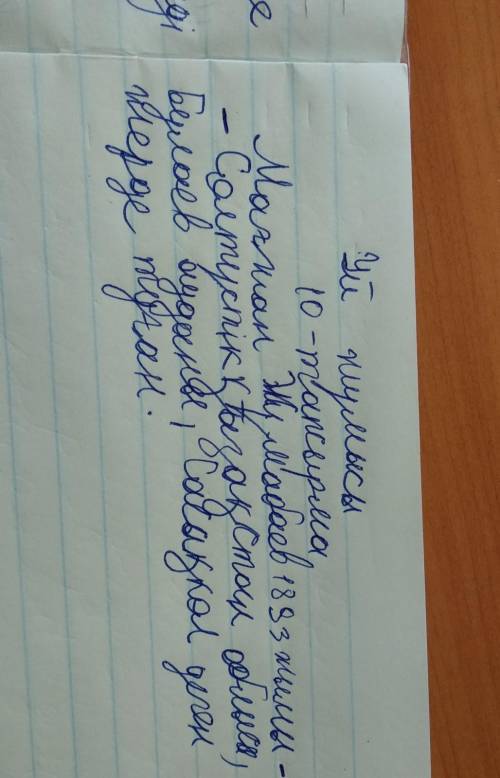 Үй жұмысы
10-тапсырма
Мағжан Жұмабаев 1893 жылы -
- Солтүстік Қазақстан облысы,
Булаев ауданы, Сасықкөл деген
жерде туған.